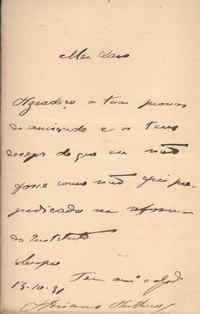 Meu caro
Agradeço a tua prova
de amizade e o teu
desejo de que eu não
fosse como não fui pre-
judicado na reforma
do Instituto
Sempre
Teu
13-10-91